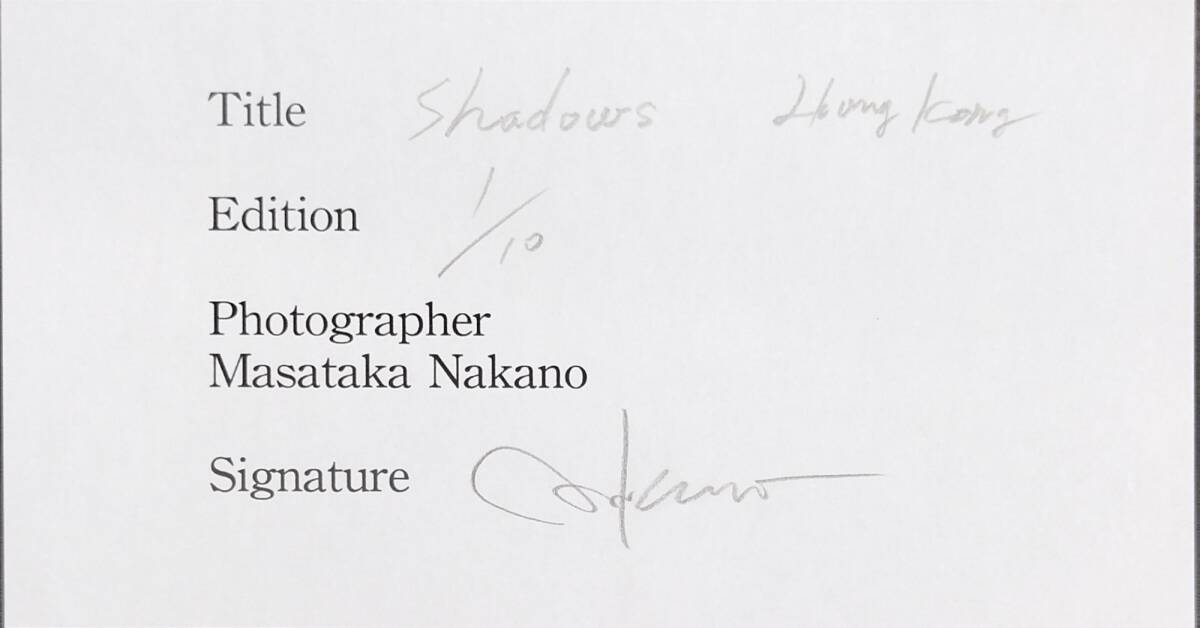 Title Shadows Hong Kong
Edition 1/10
Photographer
Masataka Nakano
Signature Nakano